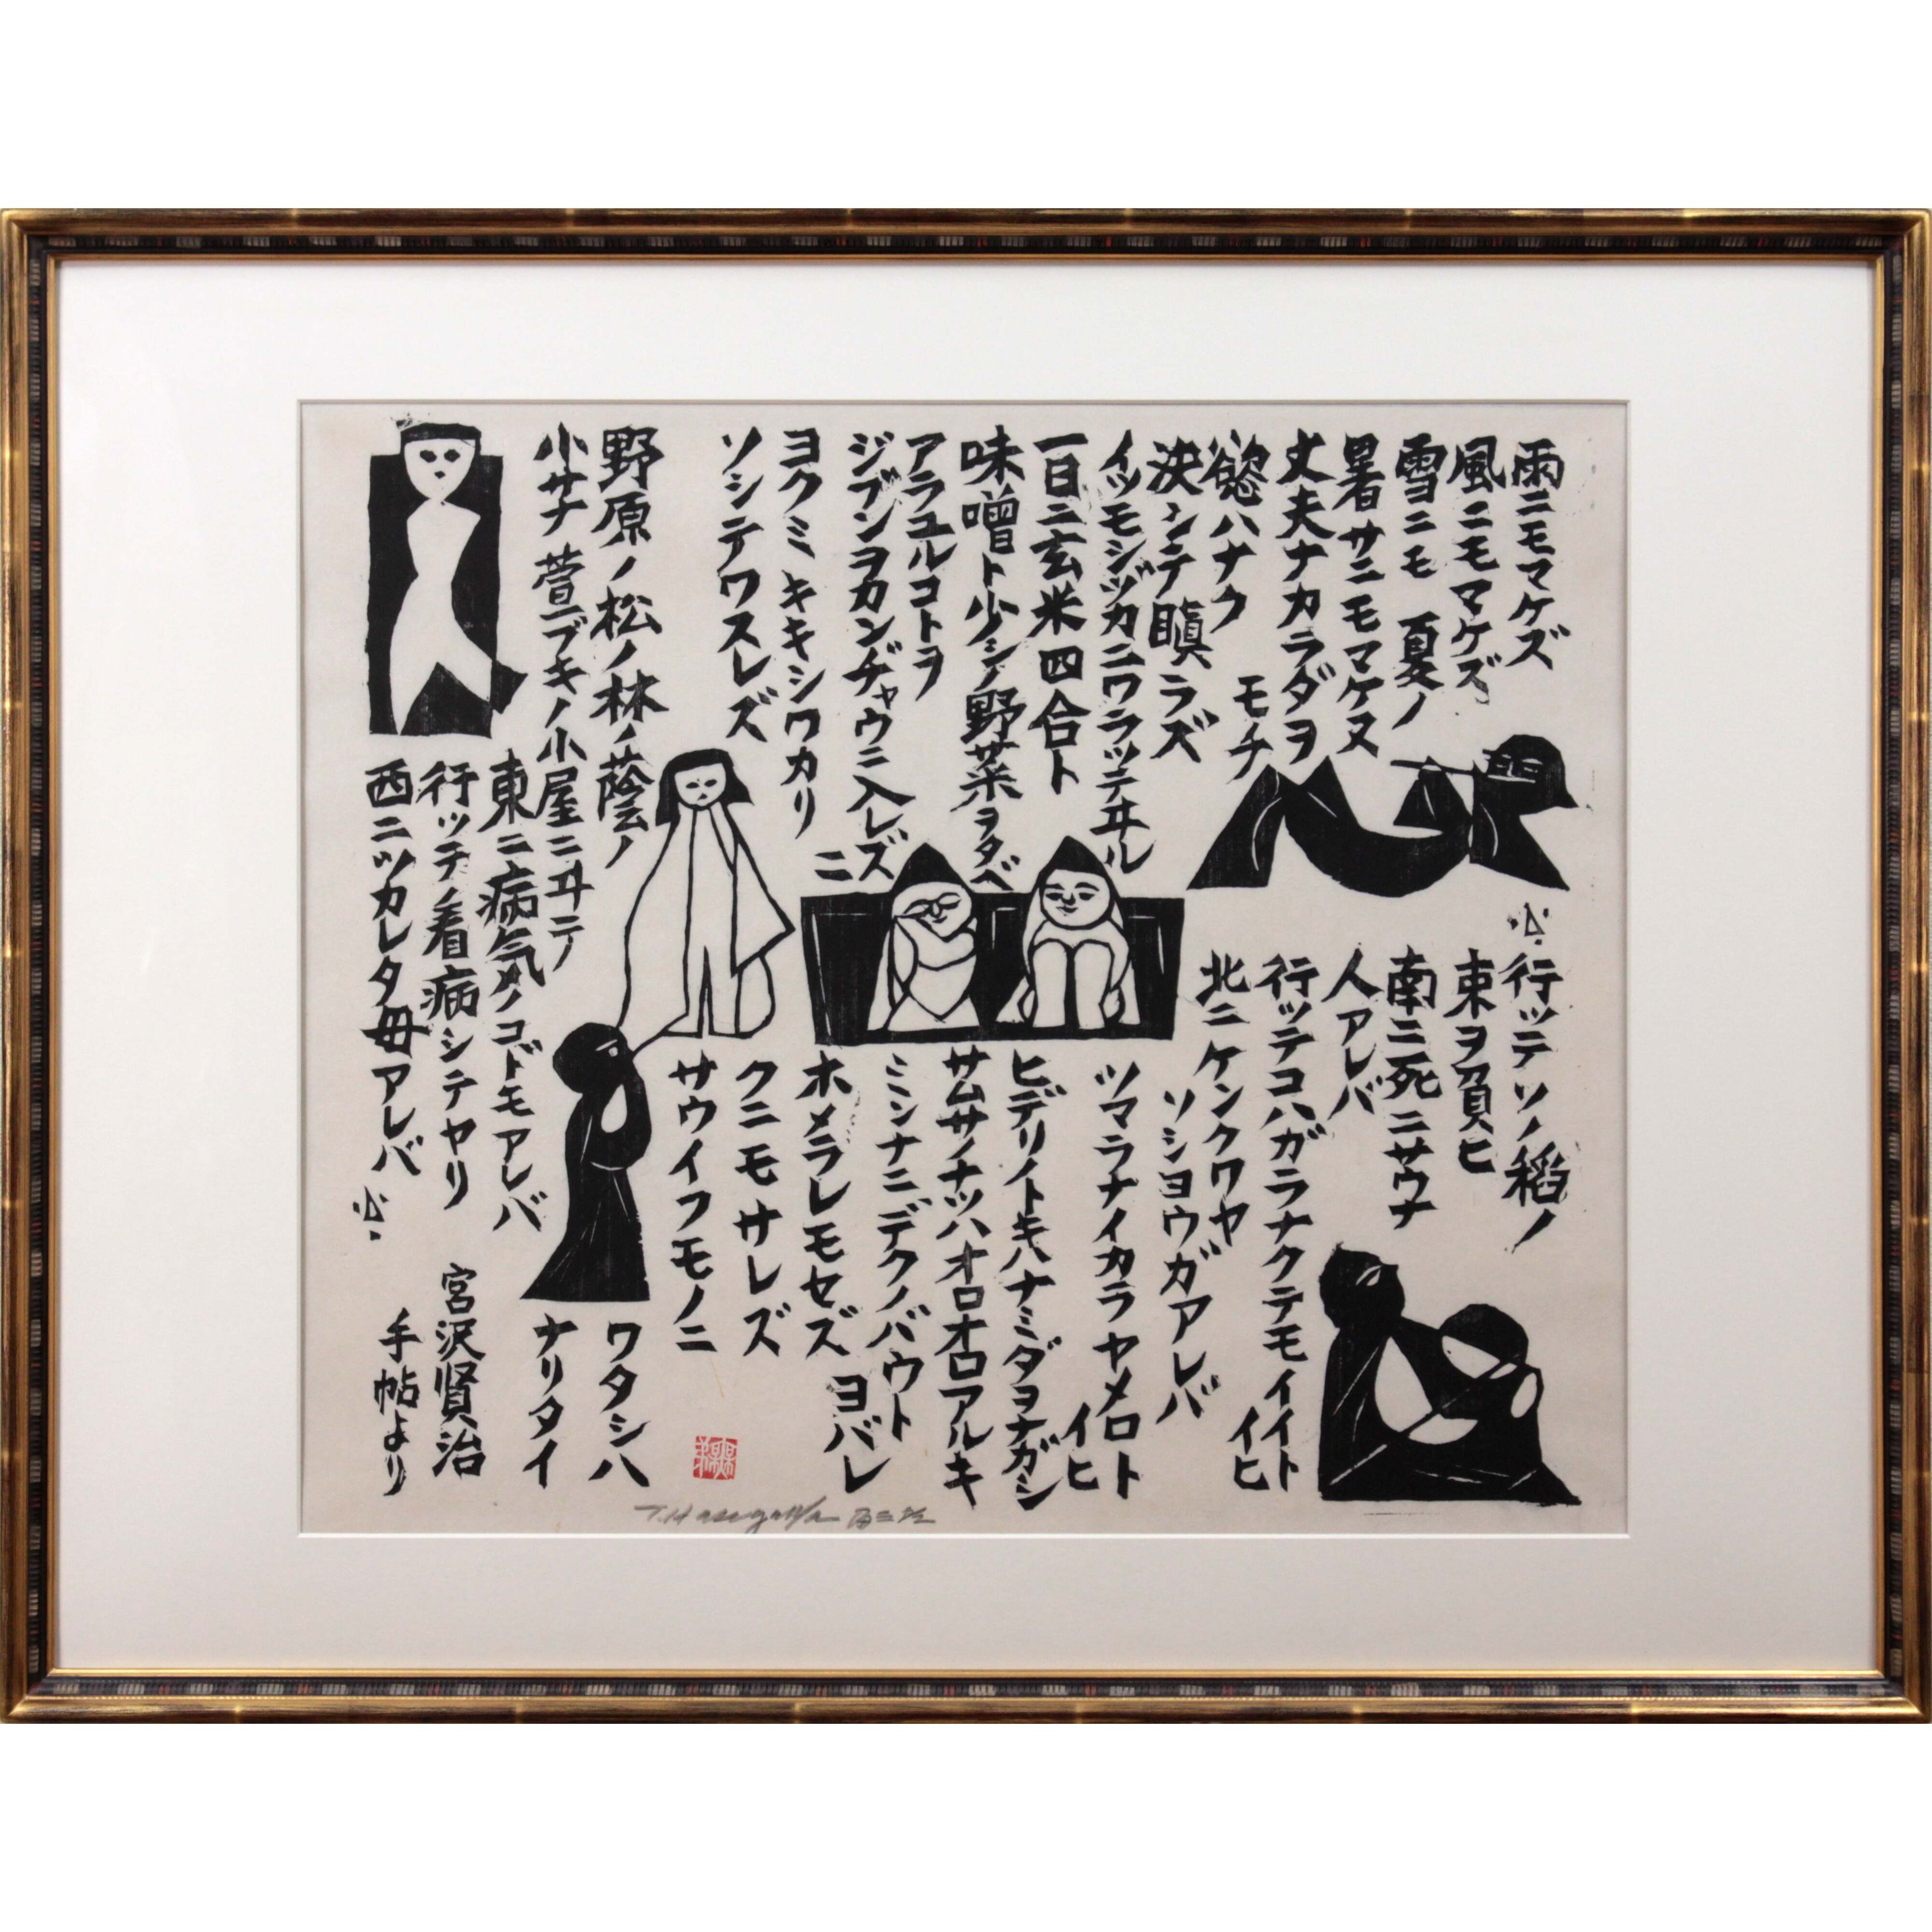 雨ニモマケズ
風ニモマケズ
雪ニモ 夏ノ
暑サニモマケヌ
丈夫ナカラダヲ
モチ
慾ハナク
決シテ瞋ラズ
イツモシヅカニワラッテヰル
一日ニ玄米四合ト
味噌ト少シノ野菜ヲタベ
アラユルコトヲ
ジブンヲカンヂャウニ入レズ
ニ
ヨクミキキシワカリ
ソシテワスレズ
野原ノ松ノ林ノ蔭ノ
小サナ萱ブキノ小屋ニヰテ
東ニ病気ノコドモアレバ
行ッテノ看病シテヤリ
西ニツカレタ母アレバ
行ッテソノ稻ノ
束ヲ負ヒ
南ニ死ニサウナ
人アレバ
行ッテコハガラナクテモイイト
イヒ
北ニケンクワヤ
ソショウガアレバ
ツマラナイカラヤメロト
イヒ
ヒデリノトキハナミダヲナガシ
サムサノナツハオロオロアルキ
ミンナニデクノバウト
ヨバレ
ホメラレモセズ
クニモサレズ
サウイフモノニ
ワタシハ
ナリタイ
宮沢賢治
手帖より
T. Hasegawa